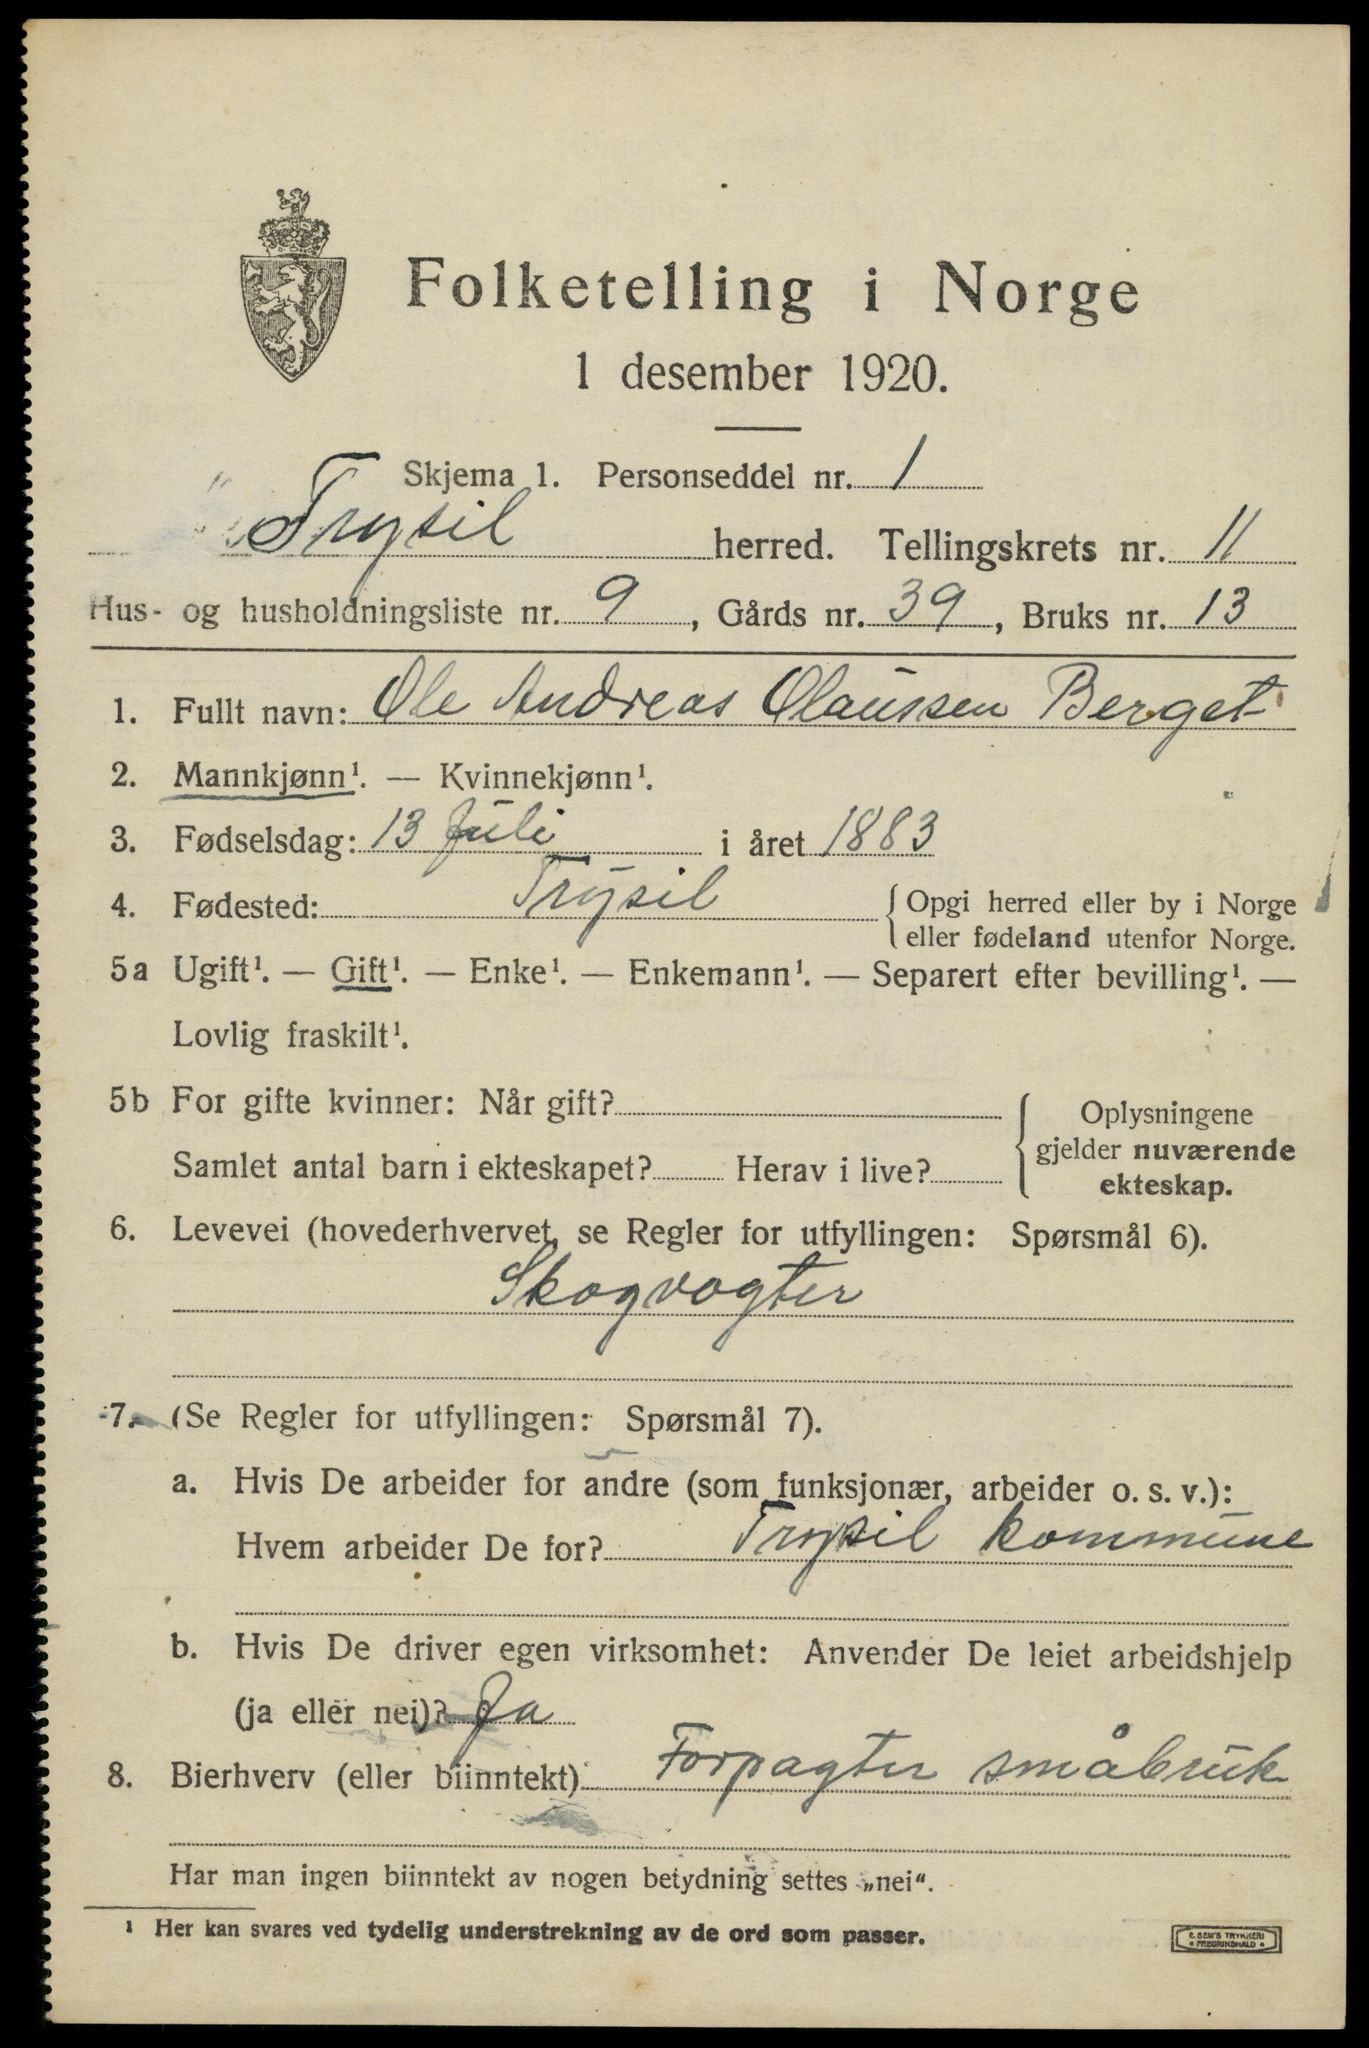 Folketelling i Norge
1 desember 1920.
Skjema 1. Personseddel nr. 1
Trysil herred. Tellingskrets nr. 11
Hus- og husholdningsliste nr. 9, Gårds nr. 39, Bruks nr. 13
1. Fullt navn: Ole Andreas Olaussen Berget
2. Mannkjønn¹. — Kvinnekjønn¹.
3. Fødselsdag: 13 Juli i året 1883
4. Fødested: Trysil { Opgi herred eller by i Norge
eller fødeland utenfor Norge.
5a Ugift¹. — Gift¹. — Enke¹. — Enkemann¹. — Separert efter bevilling¹. —
Lovlig fraskilt¹.
5b For gifte kvinner: Når gift? { Oplysningene
gjelder nuværende
Samlet antal barn i ekteskapet? Herav i live? ekteskap.
6. Levevei (hovederhvervet, se Regler for utfyllingen: Spørsmål 6).
Skogvogter
7. (Se Regler for utfyllingen: Spørsmål 7).
a. Hvis De arbeider for andre (som funksjonær, arbeider o. s. v.):
Hvem arbeider De for? Trysil kommune
b. Hvis De driver egen virksomhet: Anvender De leiet arbeidshjelp
(ja eller nei)? Ja
8. Bierhverv (eller biinntekt) Forpagter småbruk
Har man ingen biinntekt av nogen betydning settes „nei“.
¹ Her kan svares ved tydelig understrekning av de ord som passer.
E. SEM'S TRYKKERI
• FREDRIKSHALD •